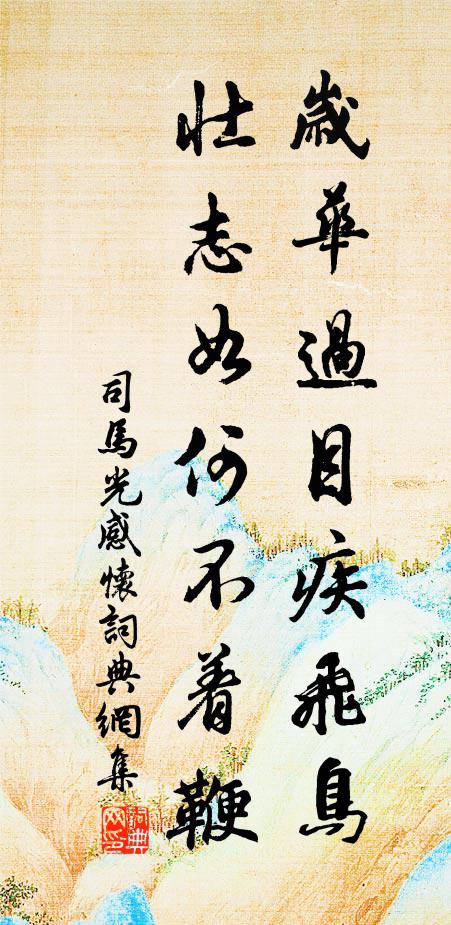 歲華過目疾飛鳥
壯志如何不着鞭
司馬光感懷詞典網集
詞典網印